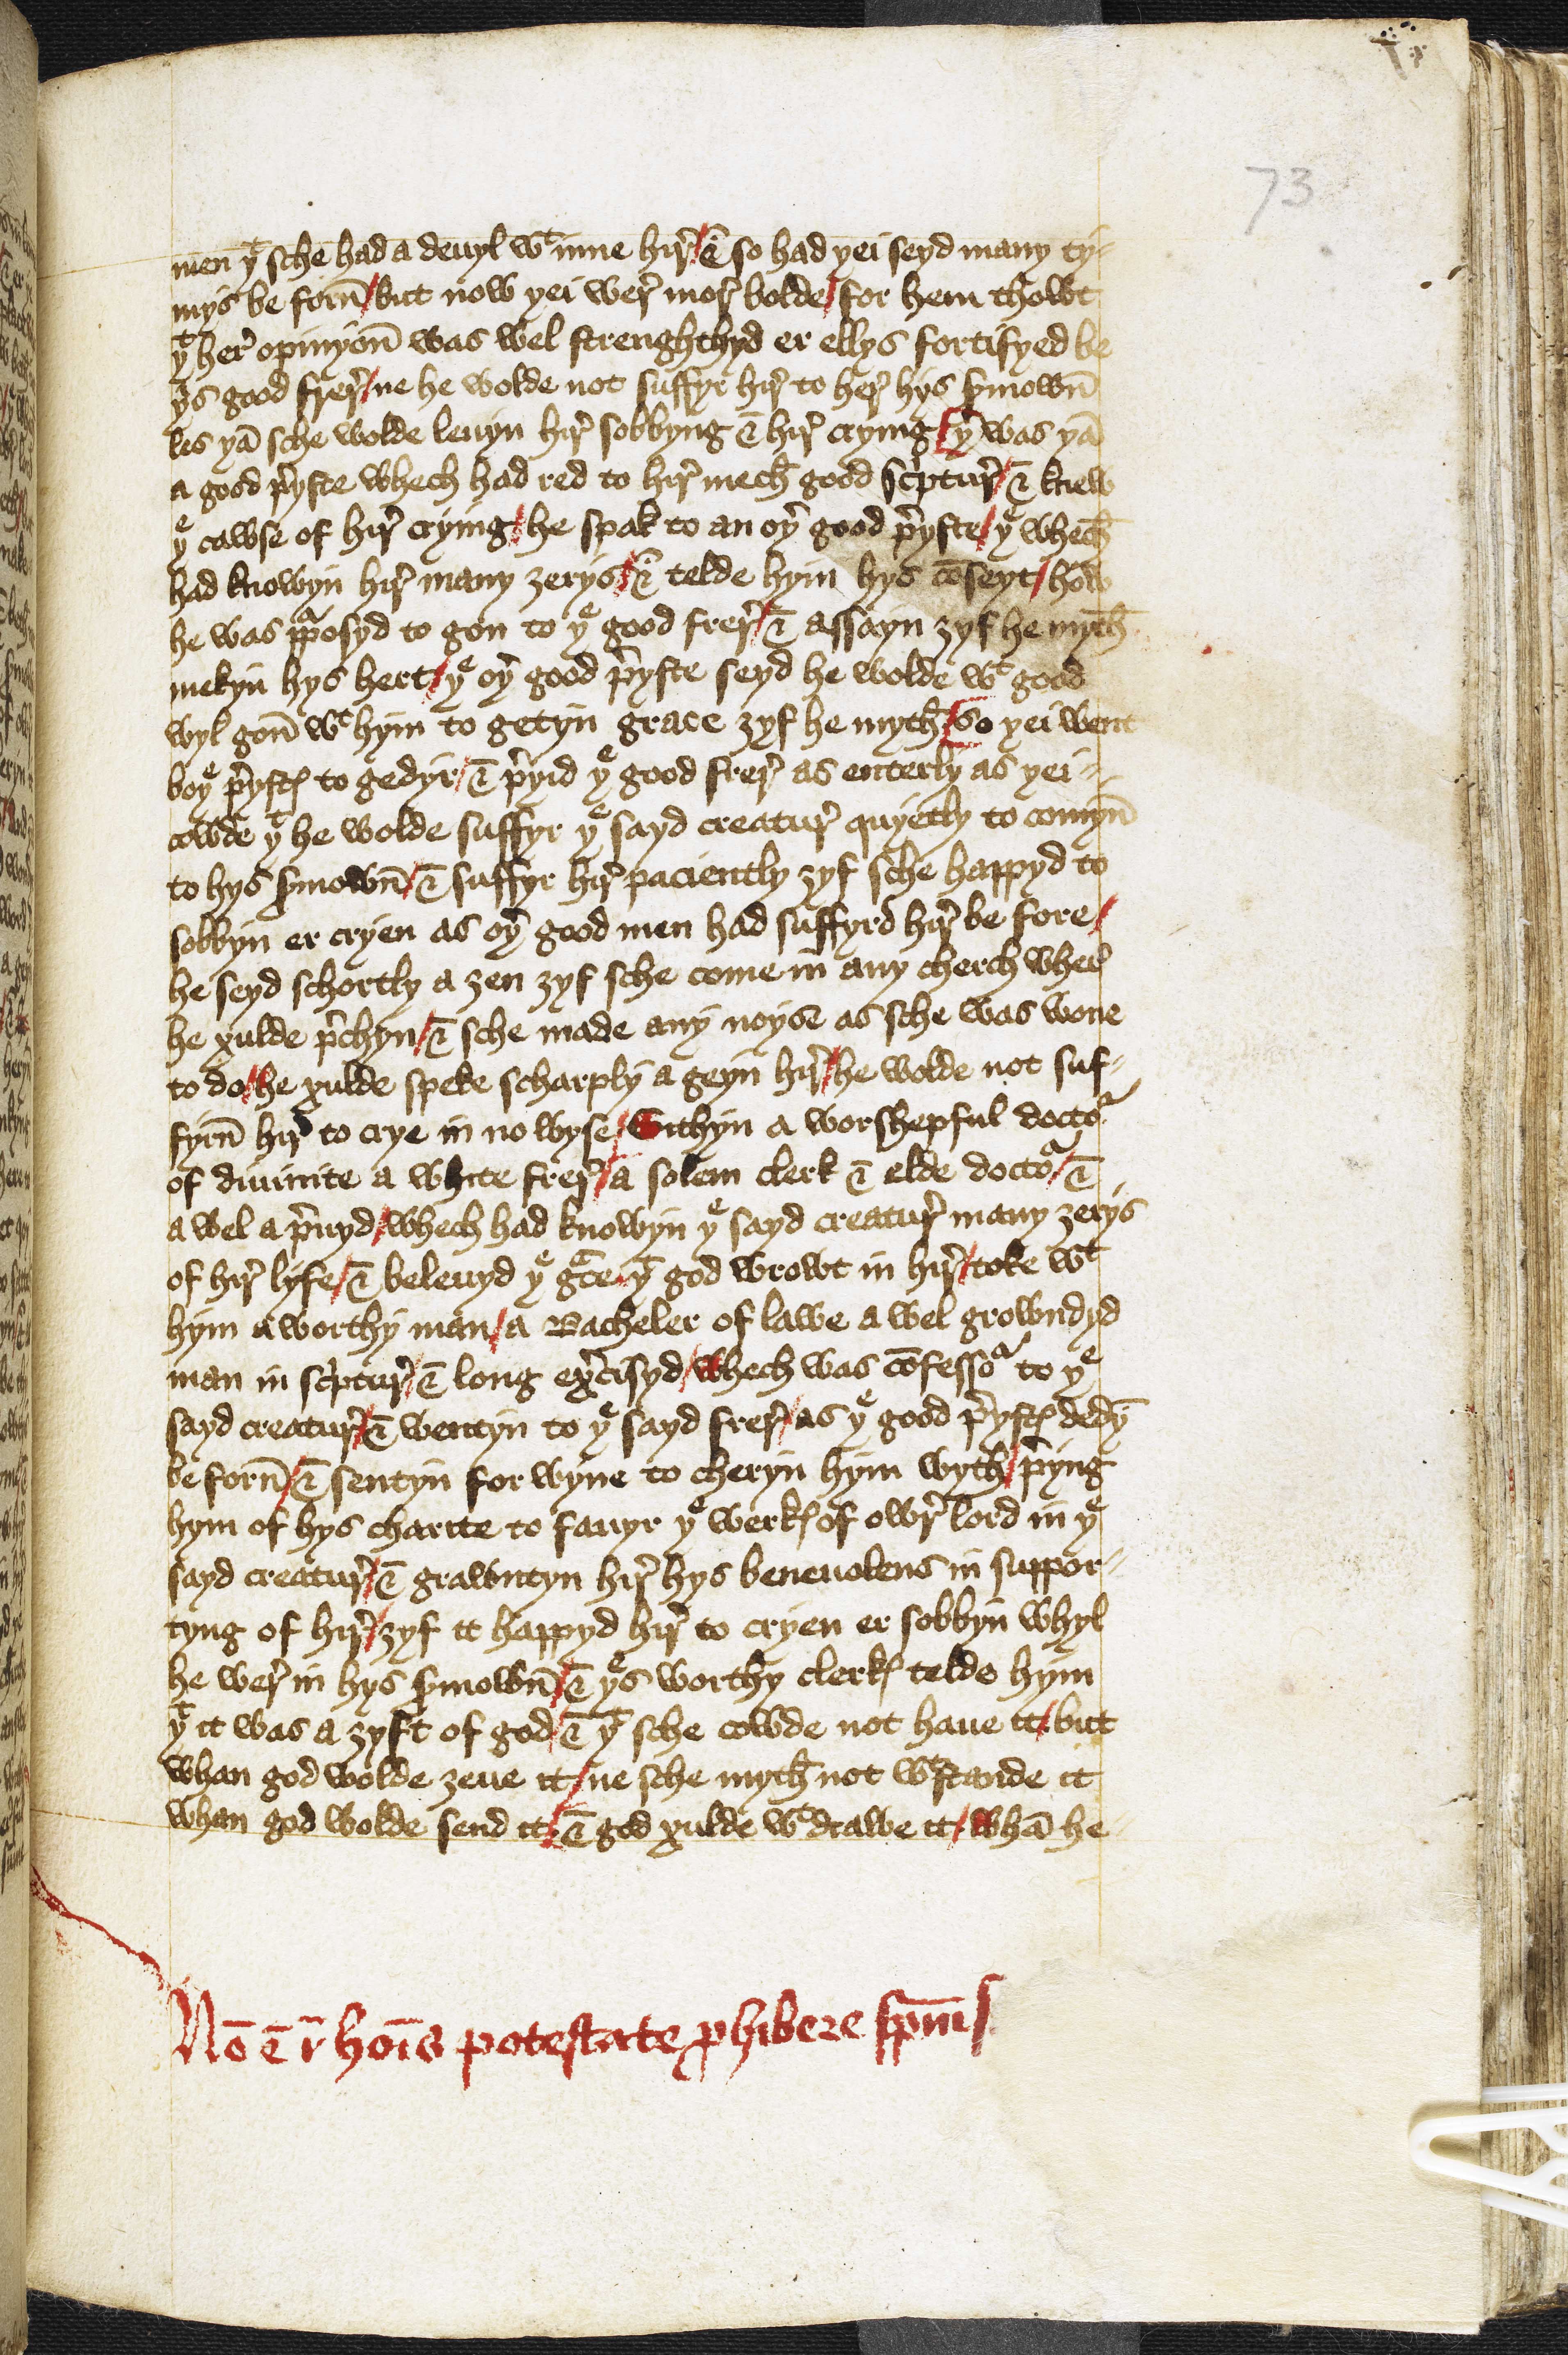 73
men yͭ sche had a deuyl wͭ inne hir̛ / & so had yei seyd many ty-
mys be forn̄ / but now yei wer̛ mor̛ bolde / for hem thowt
yͭ her̛ opinyon̄ was wel strenghthyd er ellys fortifyed be
yˢ good frer̛ / ne he wolde not suffyr hir̛ to her̛ hys s̄mown̄
les yā sche wolde leuyn hir̛ sobbyng & hir̛ crying / yʳ was yā
a good p̛yste whech had red to hir̛ mech̄ good sc̛ptur̛ / & knew
yᵉ cawse of hir̛ crying / he spak to an oy̛ good p̛yste / yᵉ whech̄
had knowyn hir̛ many zerys / & telde hym hys cōseyt / how
he was ꝓposyd to gon to yᵉ good frer̛ / & assayn zyf he myth̄
mekyn hys hert / yᵉ oy̛ good p̛yste seyd he wolde wͭ good
wyl gon̄ wͭ hym to getyn grace zyf he myth̄ / So yei went
boyᵉ p̛ystꝭ to gedyr / & p̛yid yᵉ good frer̛ as enterly as yei-
cowde yͭ he wolde suffyr yᵉ sayd creatur̛ quyetly to comyn̄
to hys s̄mown̄ / & suffyr hir̛ paciently zyf sche happyd to
sobbyn er cryen as oy̛ good men had suffyrd hir̛ be fore /
he seyd schortly a zen zyf sche come in any cherch wher̛
he xulde p̛chyn / & sche made any noyse as sche was wone
to do / he xulde speke scharply a geyn hir̛ / he wolde not suf-
fyrn̄ hir̛ to crye in no wyse / Sithyn a worshepful doctoʳ
of diuinite a white frer̛ / a solem clerk & elde doctoʳ / &
a wel a p̛uyd / whech had knowyn yᵉ sayd creatur̛ many zerys
of hir̛ lyfe / & beleuyd yᵉ gᵃce yͭ god wrowt in hir̛ / toke wͭ
hym a worthy man / a Bacheler of lawe a wel growndyd
man in sc̛ptur̛ / & long ex̛cisyd / whech was cōfessoʳ to yᵉ
sayd creatur̛ / & wentyn to yᵉ sayd frer̛ / as yᵉ good p̛ystꝭ dedȳ
be forn̄ / & sentyn for wyne to cheryn hym wyth̄ / p̛yng
hym of hys charite to fauyr yᵉ werkꝭ of owr̛ lord in yᵉ
sayd creatur̛ / & grawntyn hir̛ hys beneuolens in suppor-
tyng of hir̛ / zyf it happyd hir̛ to cryen er sobbyn whyl
he wer̛ in hys s̄mown̄ / & yᵉs worthy clerkꝭ telde hym
yͭ it was a zyft of god / & yͭ sche cowde not haue it / but
whan god wolde zeue it / ne sche myth̄ not wͭstande it
whan god wolde send it / & god xulde wͭ drawe it / whā he-
Nō ē ī hoīs potestate ꝓhibere sp̄m s